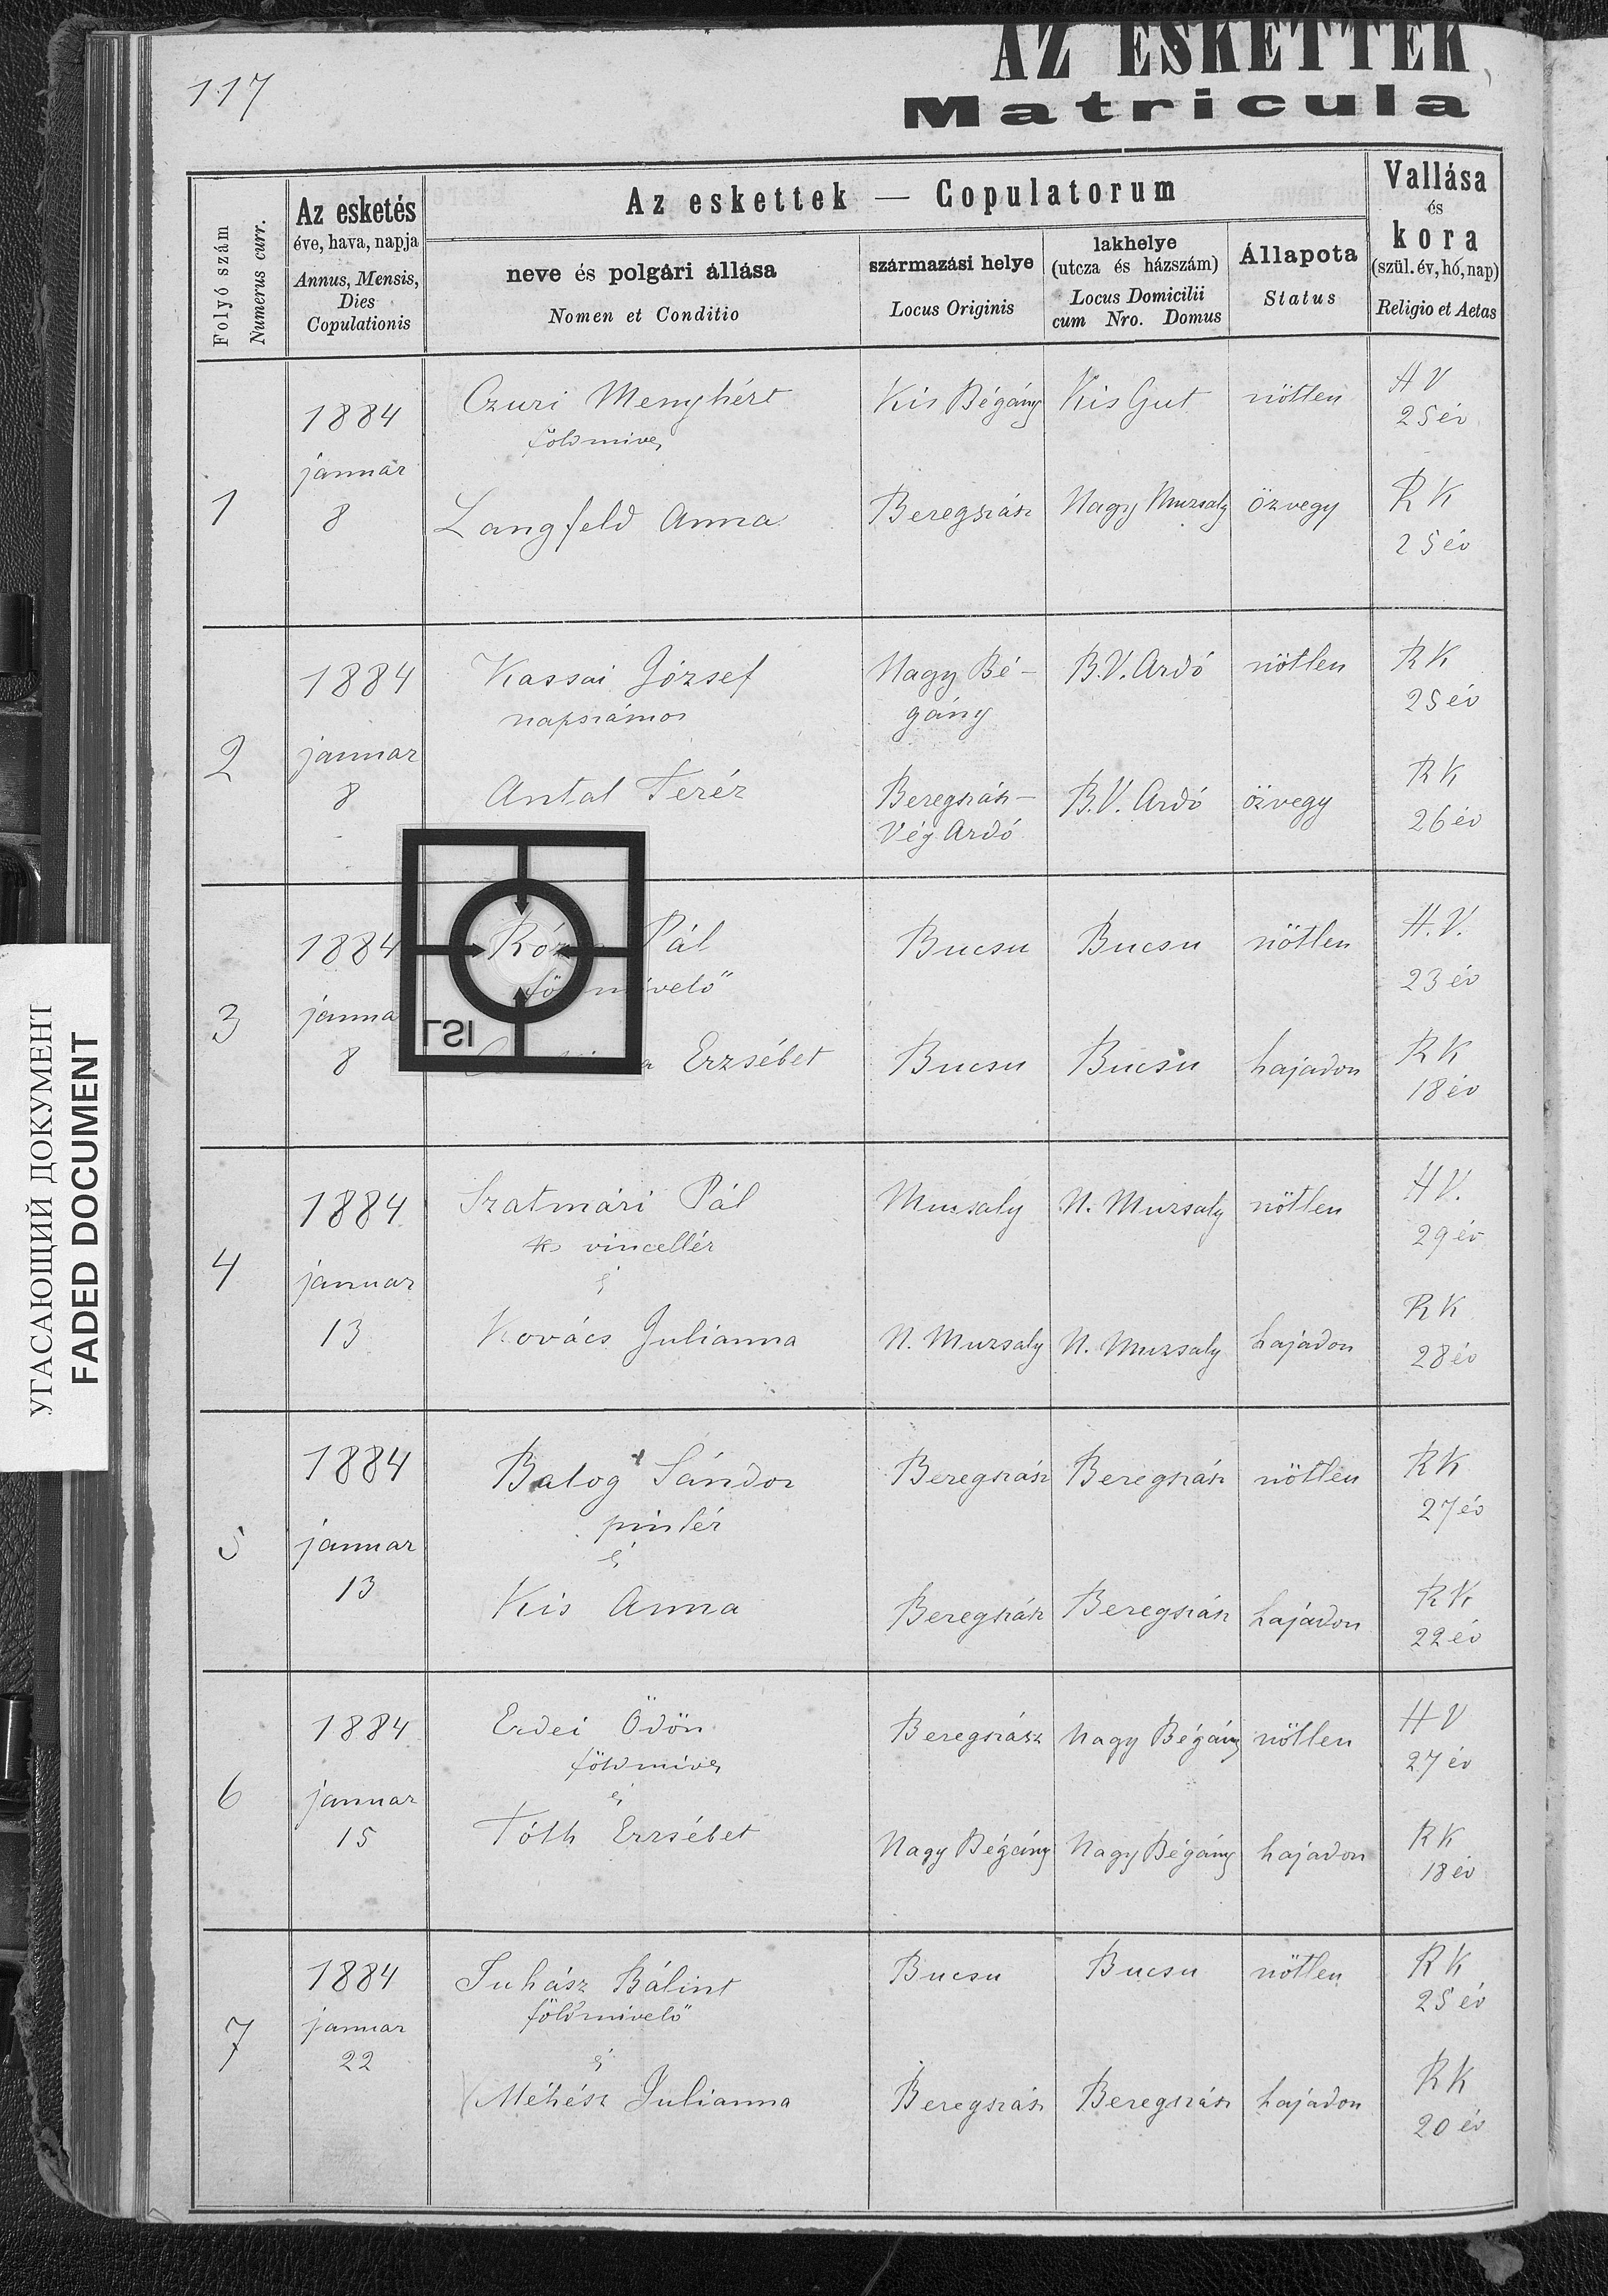 117
AZ ESKETTEK
Matricula
Folyó szám
Numerus curr.
Az esketés
éve, hava, napja
Annus, Mensis,
Dies
Copulationis
Az eskettek — Copulatorum
neve és polgári állása
Nomen et Conditio
származási helye
Locus Originis
lakhelye
(utcza és házszám)
Locus Domicilii
cum Nro. Domus
Állapota
Status
Vallása
és
kora
(szül. év, hó, nap)
Religio et Aetas
1
1884
januar
8
Czuri Menyhért
földmives
Kis Bégány
Kis Gut
nötlen
HV
25 év
Langfeld Anna
Beregszász
Nagy Muzsaly
özvegy
RK
25 év
2
1884
januar
8
Kassai József
napszámos
Nagy Bé-
gány
B.V. Ardó
nötlen
RK
25 év
Antal Teréz
Beregszász-
Vég Ardó
B.V. Ardó
özvegy
RK
26 év
3
1884
janua
8
Pál
LSI
Bucsu
Bucsu
nötlen
H.V.
23 év
Erzsébet
Bucsu
Bucsu
hajadon
RK
18 év
4
1884
januar
13
Szatmári Pál
vincellér
és
Muzsaly
N. Muzsaly
nötlen
HV.
29 év
Kovács Julianna
N. Muzsaly
N. Muzsaly
hajadon
RK
28 év
5
1884
januar
13
Balog Sándor
pintér
és
Beregszász
Beregszász
nötlen
RK
27 év
Kis Anna
Beregszász
Beregszász
hajadon
RK
22 év
6
1884
januar
15
Erdei Ödön
földmives
és
Beregszász
Nagy Bégány
nötlen
HV
27 év
Tóth Erzsébet
Nagy Bégány
Nagy Bégány
hajadon
RK
18 év
7
1884
januar
22
Juhász Bálint
földmivelö
és
Bucsu
Bucsu
nötlen
RK
25 év
Méhész Julianna
Beregszász
Beregszász
hajadon
RK
20 év
УГАСАЮЩИЙ ДОКУМЕНТ
FADED DOCUMENT